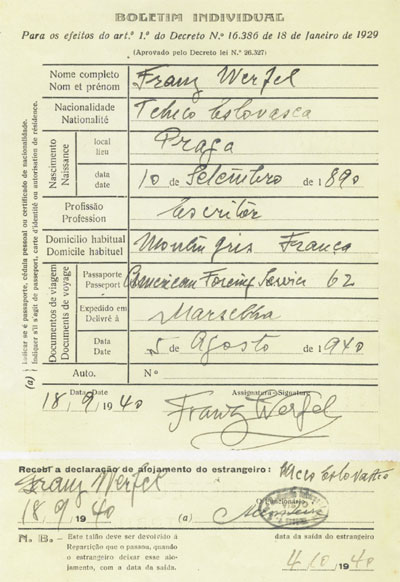 BOLETIM INDIVIDUAL
Para os efeitos do art.º 1.º do Decreto N.º 16.386 de 18 de Janeiro de 1929
(Aprovado pelo Decreto lei N.º 26.327)
Nome completo
Nom et prénom
Franz Werfel
Nacionalidade
Nationalité
Tcheco Eslovasca
Nascimento
Naissance
local
lieu
Praga
data
date
10 de Setembro de 1890
Profissão
Profession
Escritor
Domicilio habitual
Domicile habituel
França
Documentos de viagem
Documents de voyage
Passaporte
Passeport
American Foreing Service 62
Expedido em
Delivré à
Marselha
Data
Date
5 de Agosto de 1940
(a)
Auto.
N.º
(a) Indicar se é passaporte, cédula pessoal ou certificado de nacionalidade.
Indiquer s'il s'agit de passeport, carte d'identité ou autorisation de résidence.
Data-Date
18, 9 1940
Assignatura-Signature
Franz Werfel
Recebi a declaração de alojamento do estrangeiro:
Franz Werfel
18, 9 1940
(a)
O Funcionário
N. B. – Este talão deve ser devolvido á
Repartição que o passou, quando
o estrangeiro deixar esse alo-
jamento, com a data da saída.
data da saída do estrangeiro
4/10 1940